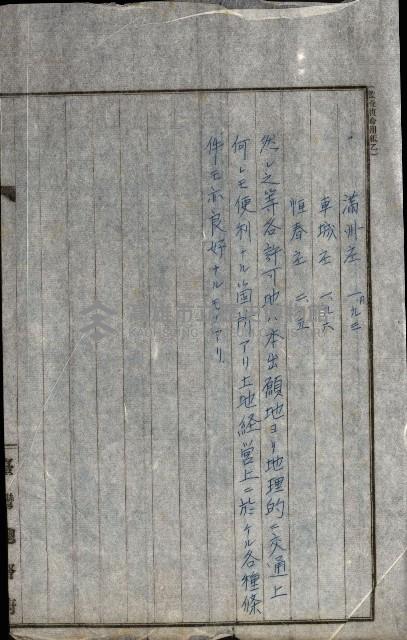 滿州庄 一、九三
車城庄 一、八六
恒春庄 二、五
然レ之等各許可地ハ本出願地ヨリ地理的ニ交通上
何レモ便利ナル箇所アリ土地経営上ニ於ケル各種條
件モ亦良好ナルモノアリ、
臺灣總督府